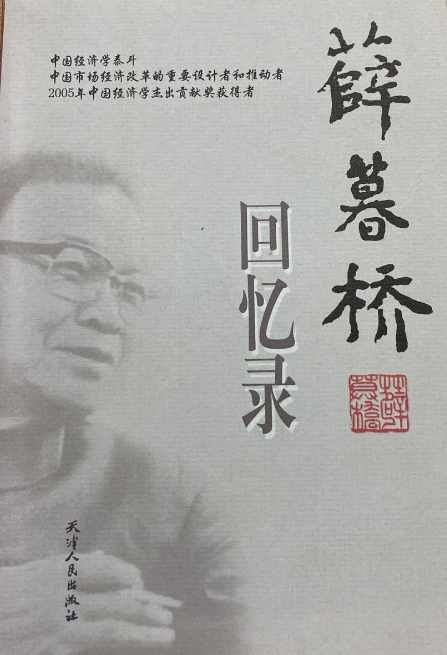 中国经济学泰斗
中国市场经济改革的重要设计者和推动者
2005年中国经济学杰出贡献奖获得者
薛暮桥
回忆录
薛暮橋
天津人民出版社